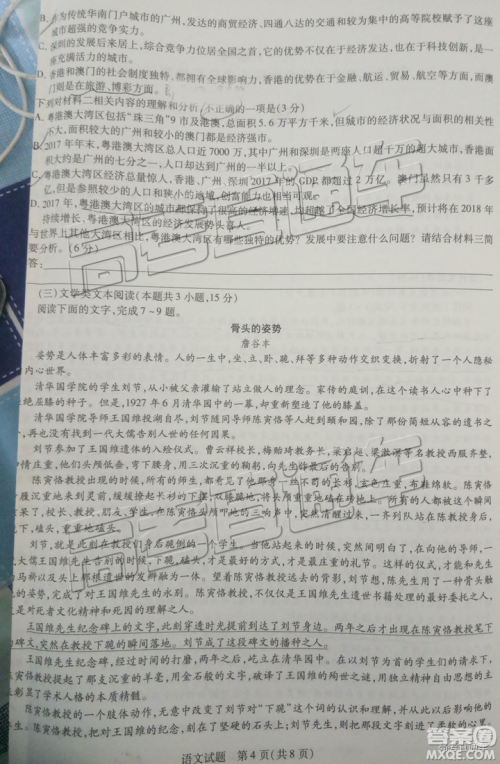 B.作为传统华南门户城市的广州,发达的商贸经济、四通八达的交通和较为集中的高等院校赋予了这座
强的竞争实力。
C.深圳的发展后来居上,综合竞争力位居全国之首,它的优势不仅在于经济发达,也在于科技创新,是一
座充满活力的城市。
D.香港和澳门的社会制度独特,都拥有全球影响力,香港的优势在于金融、航运、贸易、航空等方面,而澳
门则是在旅游、博彩方面。
下列对材料二相关内容的理解和分析,不正确的一项是(3分)
A.粤港澳大湾区包括“珠三角”9市及港澳,总面积5.6万平方千米,但城市的经济状况与面积的相关性
不大,面积较大的广州和较小的澳门都是经济强市。
B.2017年年末,粤港澳大湾区总人口近7000万,其中广州和深圳是两座人口超千万的超大城市,香港面
积大约是广州的七分之一,人口却达到广州的一半以上。
C.粤港澳大湾区经济总量惊人,香港、广州、深圳2017年的GDP都超过2万亿。澳门虽然只有3千多
亿,但是参照较少的人口和狭小的面积,经济实力也相当可观。
D.2017年,粤港澳大湾区的城市
经济增长率,预计将在2018年
持续增长,粤港澳大湾区的发展势头喜人。
与世界上其他大湾区相比,粤港澳大湾区有哪些独特的优势?发展中要注意什么问题?请结合材料三
简要分析。(6分)
答:
(三)文学类文本阅读(本题共3小题,15分)
阅读下面的文字,完成7~9题。
骨头的姿势
詹谷丰
姿势是人体丰富多彩的表情。人的一生中,坐、立、卧、跪、拜等多种动作交织变换,折射了一个人隐秘
内心世界。
清华国学院的学生刘节,从小被父亲灌输了站立做人的理念。家传的庭训,在这个读书人心中种下了
绝屈膝的种子。但是,1927年6月清华园中的一幕,却重新塑造了他的膝盖。
清华国学院导师王国维投湖自尽,刘节随同导师陈寅恪等人赶到颐和园,除了那份简短从容的遗书之
后人再也看不到一代大儒告别人世的任何因果。
刘节参加了王国维遗体的入殓仪式。曹云祥校长、梅贻琦教务长、梁启超、梁漱溟等名教授西服齐整,
情庄重,他们头颅低垂,弯下腰身,用三次沉重的鞠躬,向先生作最后的告别。
陈寅恪教授出现的时候,所有的师生,都看见了他那身一丝不苟的长衫,玄色庄重,布鞋绵软。陈寅恪
履沉重地来到灵前,缓缓撩起长衫的下摆,双膝跪地,将头颅重重地磕在砖地上。所有的人都被这个瞬间
来了,校长、教授、朋友、学生,在陈寅恪头颅叩地的三响声中,突然清醒过来,一齐列队站在陈教授身后,
下,磕头,重重地磕头。
刘节,就是此刻在教授们身后跪倒的一个学生。当他站起来的时候,突然明白了,在向他的导师,一
大儒王国维先生告别的时候,下跪,才是最好的方式,才是最庄重的礼节,才能和先生的马褂以及
先生
马褂以及头上那根遗世的发辫融为一体。望着陈寅恪教授远去的背影,刘节想,陈先生用一个骨头触
地的姿势,完成了对王国维先生的永别。陈寅恪教授,不仅仅是王国维先生遗嘱托付的处理书籍之人,
是死者文化精神和死因的理解之人。
王国维先生纪念碑上的文字,此刻穿透时光提前刻到了刘节身边。两年之后才出现在陈寅恪教授笔下
的碑文,突然在教授下跪的瞬间落地。刘节成了这段碑文的播种之人。
王国维先生纪念碑,经过时间的打磨,两年之后,屹立在清华园中。在以刘节为首的学生们的请求下,
陈寅恪教授提起了那支沉重的羊毫。他用金石般的文字,破译了王国维先生的殉世之谜,用独立精神自由思想的
主彰显了学术人格的本质精髓。
陈寅恪教授的一个肢体动作,无意中改变了刘节对“下跪”这个词的认识和理解,并由此奠定了他们
。把对王国维的纪念,刻在了坚硬的石头上;刘节先生,则把那段文字刻进了柔软
语文试题 第4页(共8页)
答案圈
MXQE.COM